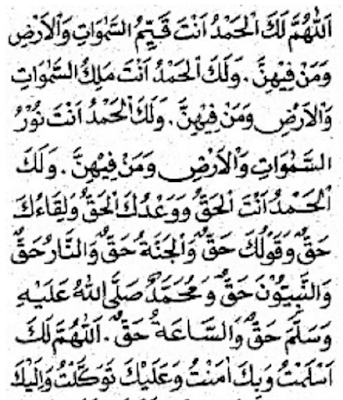 اَللّٰهُمَّ لَكَ الْحَمْدُ اَنْتَ قَيِّمُ السَّمٰوَاتِ وَالْاَرْضِ
وَمَنْ فِيْهِنَّ . وَلَكَ الْحَمْدُ اَنْتَ مَلِكُ السَّمٰوَاتِ
وَالْاَرْضِ وَمَنْ فِيْهِنَّ . وَلَكَ الْحَمْدُ اَنْتَ نُوْرُ
السَّمٰوَاتِ وَالْاَرْضِ وَمَنْ فِيْهِنَّ . وَلَكَ
الْحَمْدُ اَنْتَ الْحَقُّ وَوَعْدُكَ الْحَقُّ وَلِقَاءُكَ
حَقٌّ وَقَوْلُكَ حَقٌّ وَالْجَنَّةُ حَقٌّ وَالنَّارُ حَقٌّ
وَالنَّبِيُّوْنَ حَقٌّ وَمُحَمَّدٌ صَلَّى اللّٰهُ عَلَيْهِ
وَسَلَّمَ حَقٌّ وَالسَّاعَةُ حَقٌّ . اَللّٰهُمَّ لَكَ
اَسْلَمْتُ وَبِكَ اٰمَنْتُ وَعَلَيْكَ تَوَكَّلْتُ وَاِلَيْكَ